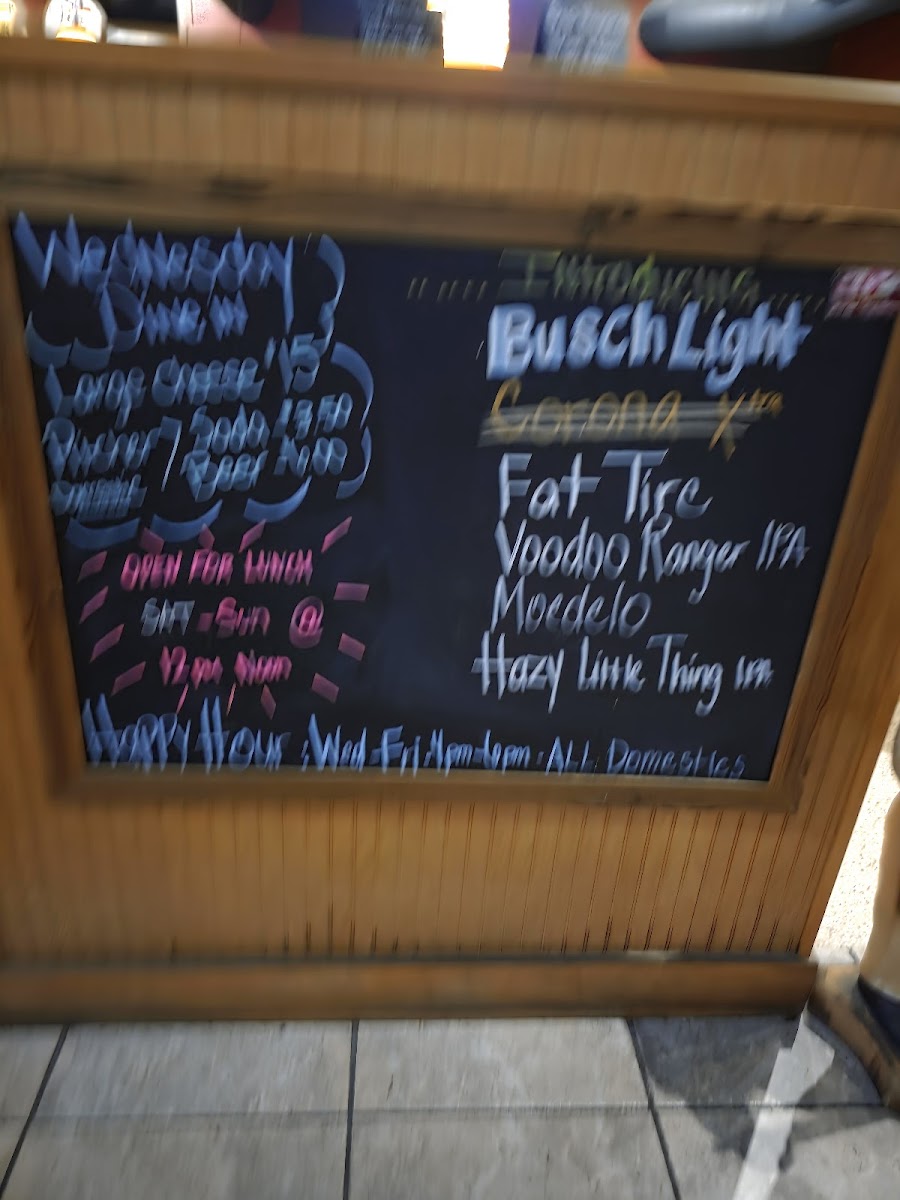 Wednesday
Dine in
Large Cheese $15
Pitcher / Soda
Beer
OPEN FOR LUNCH
SAT - Sun @
12pm Noon
Happy Hour : Wed-Fri 4pm-6pm : ALL Domestics
Introducing
Busch Light
Corona Xtra
Fat Tire
Voodoo Ranger IPA
Moedelo
Hazy Little Thing IPA